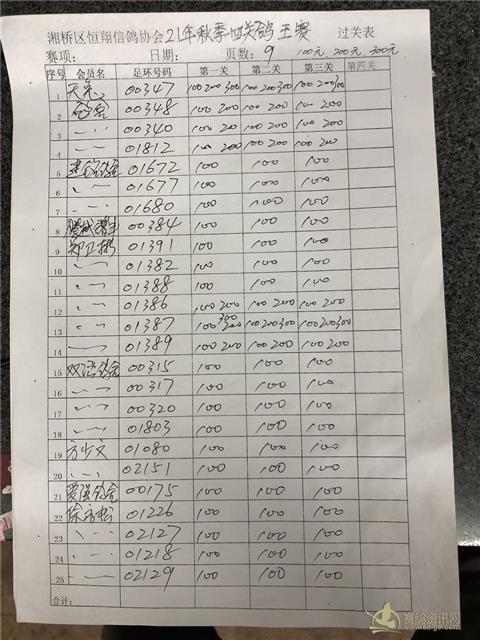 湘桥区恒翔信鸽协会21年秋季四关鸽王赛 过关表
赛项: 日期: 页数: 9 100元 200元 300元
序号 会员名 足环号码 第一关 第二关 第三关 第四关
1 00347 100 200 300 100 200 300 100 200 300
2 00348 100 200 100 200 100 200
3 〃 00340 100 200 100 200 100 200
4 〃 01812 100 200 100 200 100 200
5 01672 100 100 100
6 〃 01677 100 100 100
7 〃 01680 100 100 100
8 00384 100 100 100
9 郑卫彬 01391 100 100 100
10 〃 01382 100 100 100
11 〃 01388 100 100 100
12 〃 01386 100 200 100 200 100 200
13 〃 01387 100 200 300 100 200 300 100 200 300
14 〃 01389 100 200 100 200 100 200
15 00315 100 100 100
16 〃 00317 100 100 100
17 〃 00320 100 100 100
18 〃 01803 100 100 100
19 方少文 01080 100 100 100
20 〃 02151 100 100 100
21 爱强鸽舍 00175 100 100 100
22 01226 100 100 100
23 〃 02127 100 100 100
24 〃 01218 100 100 100
25 〃 02129 100 100 100
合计:
赛鸽资讯网